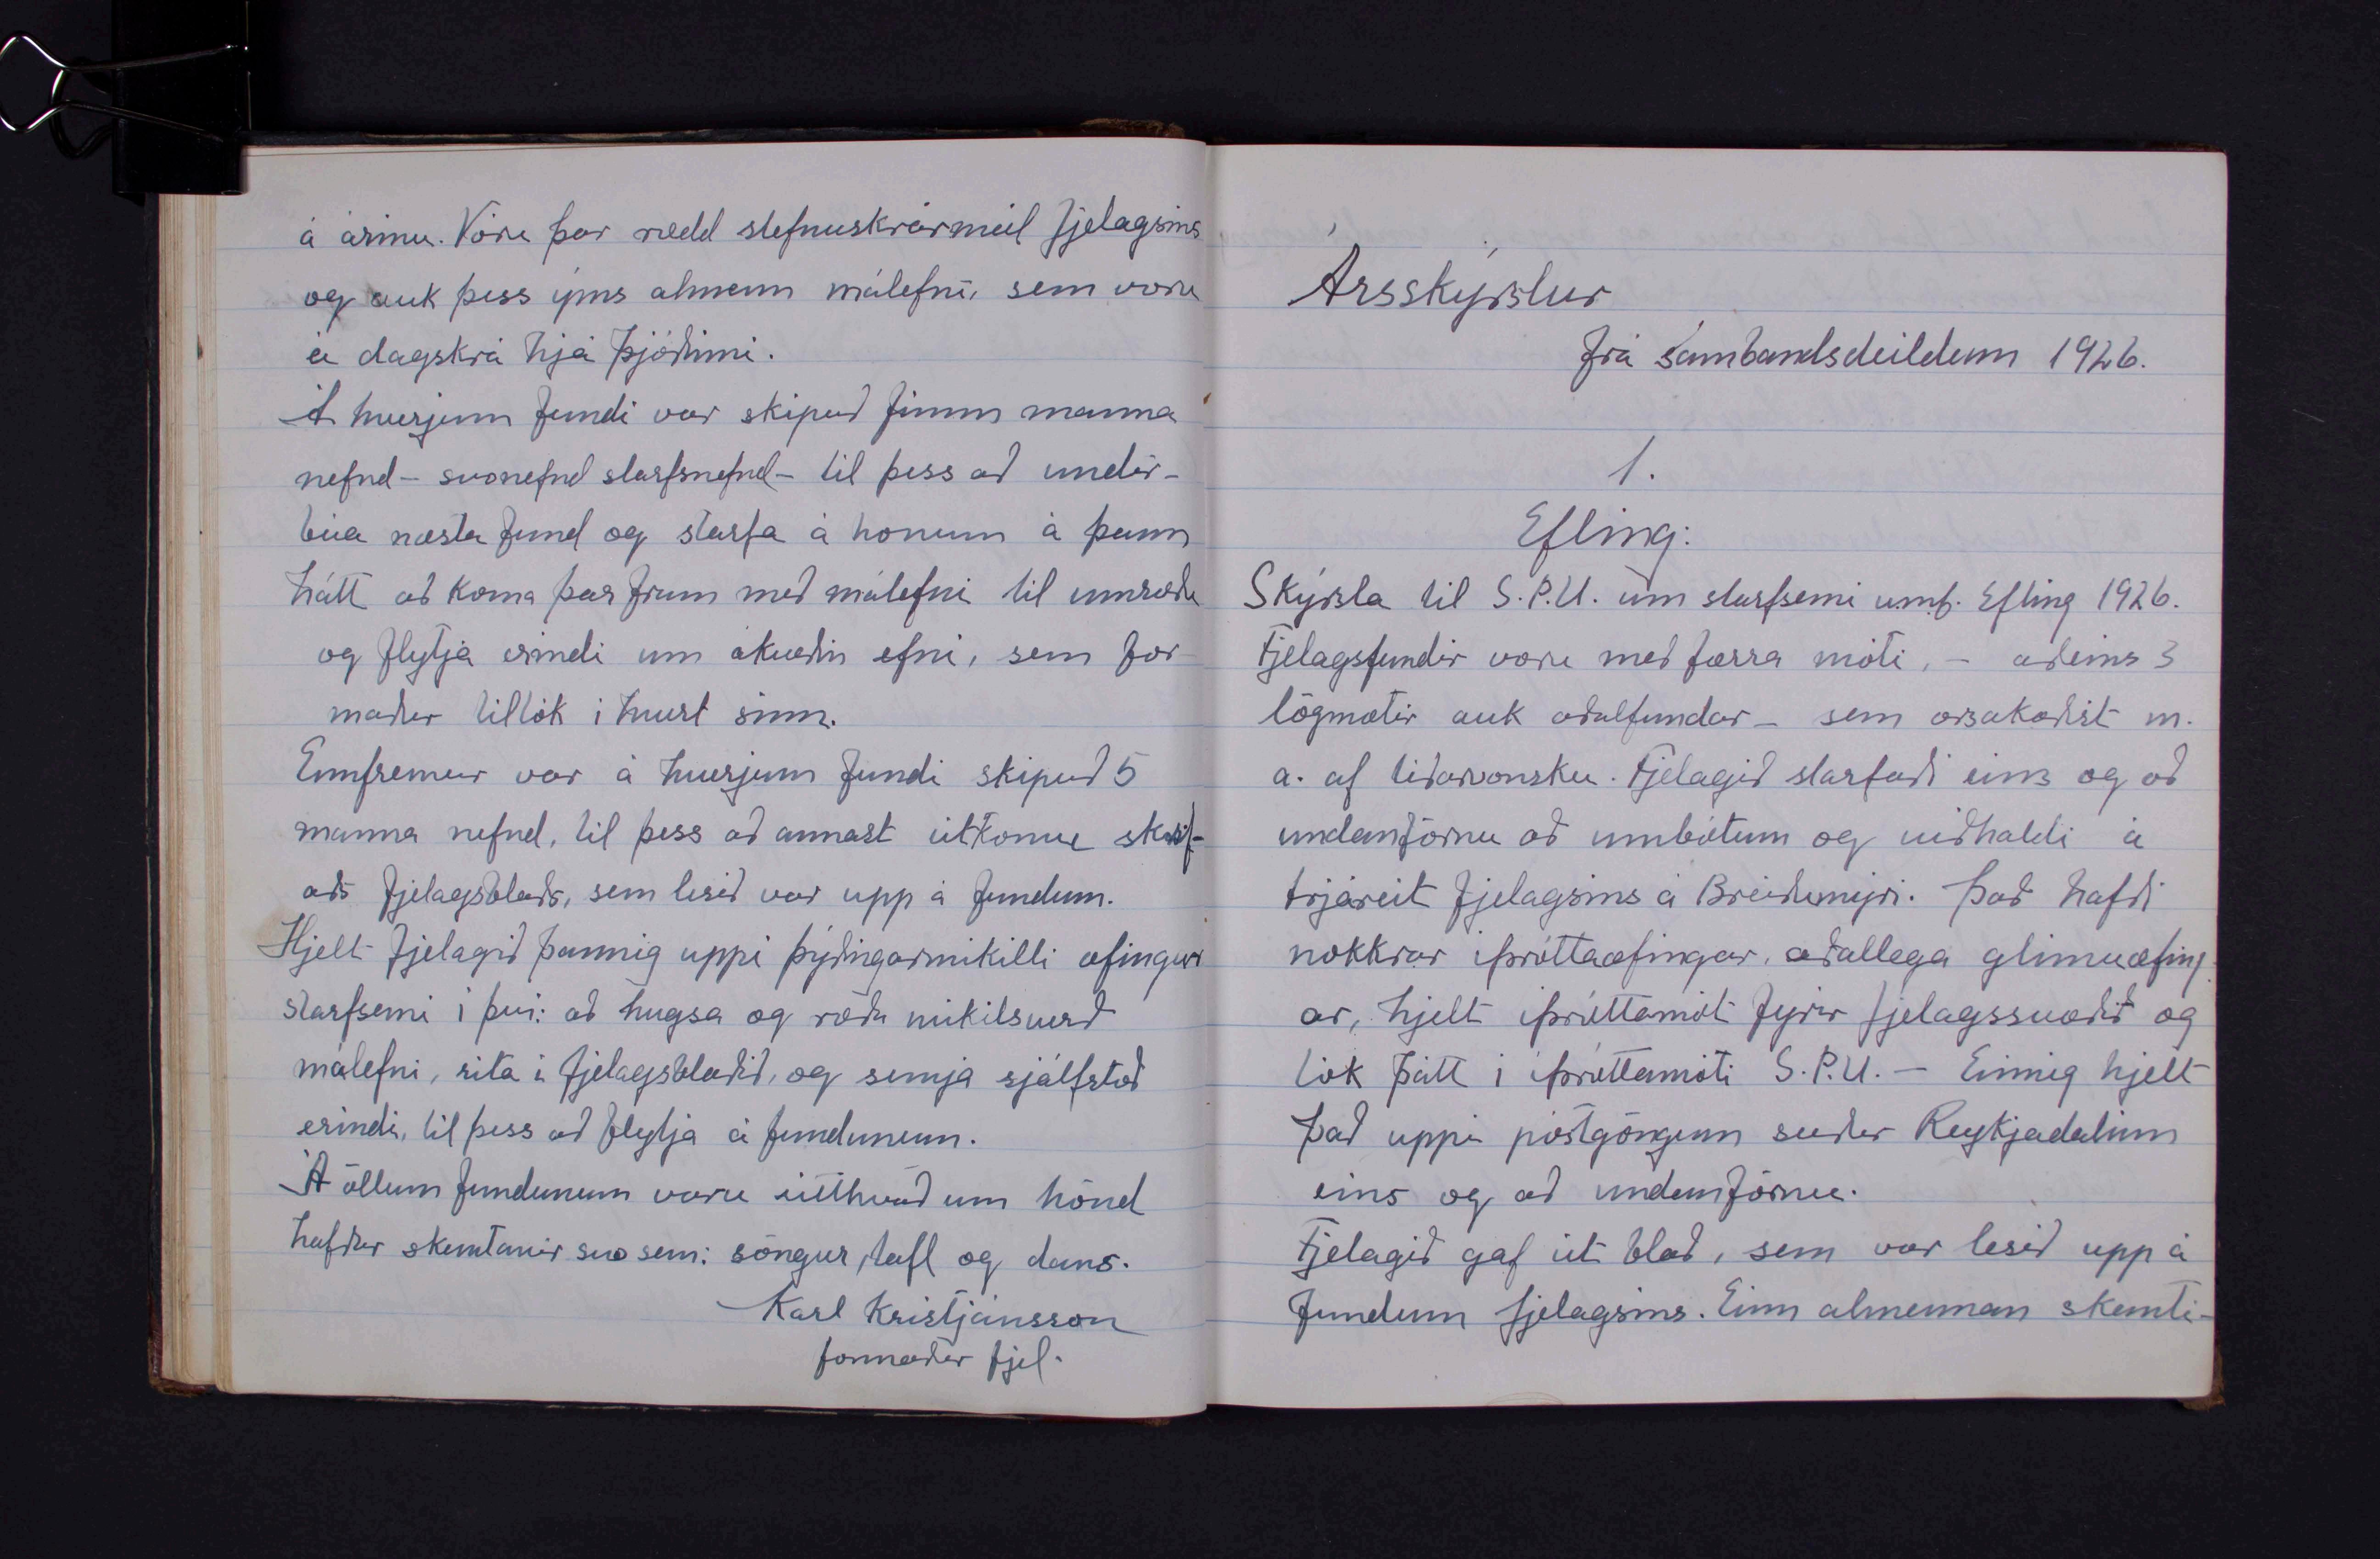 á árinu. Vóru þar rædd stefnuskrármál fjelagsins
og auk þess ýms almenn málefni, sem voru
á dagskrá hjá þjóðinni.
Á hverjum fundi var skipuð fimm manna
nefnd - svonefnd starfsnefnd - til þess að undir-
búa næsta fund og starfa á honum á þann
hátt að koma þar fram með málefni til umræðu
og flytja erindi um ákveðin efni, sem for-
maður tiltók i hvert sinn.
Ennfremur var á hverjum fundi skipuð 5
manna nefnd, til þess að annast útkomu skrif-
aðs fjelagsblaðs, sem lesið var upp á fundum.
Hjelt fjelagið þannig uppi þýðingarmikilli æfingar
starfsemi i því: að hugsa og ræða mikilsverð
málefni, rita i fjelagsblaðið, og semja sjálfstæð
erindi, til þess að flytja á fundunum.
Á öllum fundunum voru eitthvað um hönd
hafðar skemtanir svo sem: söngur, tafl og dans.
Karl Kristjánsson
formaður fjel.
Ársskýrslur
frá Sambandsdeildum 1926.
1.
Efling:
Skýrsla til S.Þ.U. um starfsemi u.m.f. Efling 1926.
Fjelagsfundir voru með færra móti, - aðeins 3
lögmætir auk aðalfundar - sem orsakaðist m.
a. af tiðarvonsku. Fjelagið starfaði eins og að
undanförnu að umbótum og viðhaldi á
trjáreit fjelagsins á Breiðumýri. Það hafði
nokkrar iþróttaæfingar, aðallega glimuæfing-
ar, hjelt iþróttamót fyrir fjelagssvæðið og
tók þátt i iþróttamóti S.Þ.U. - Einnig hjelt
það uppi póstgöngum suður Reykjadalinn
eins og að undanförnu.
Fjelagið gaf út blað, sem var lesið upp á
fundum fjelagsins. Einn almennan skemti-